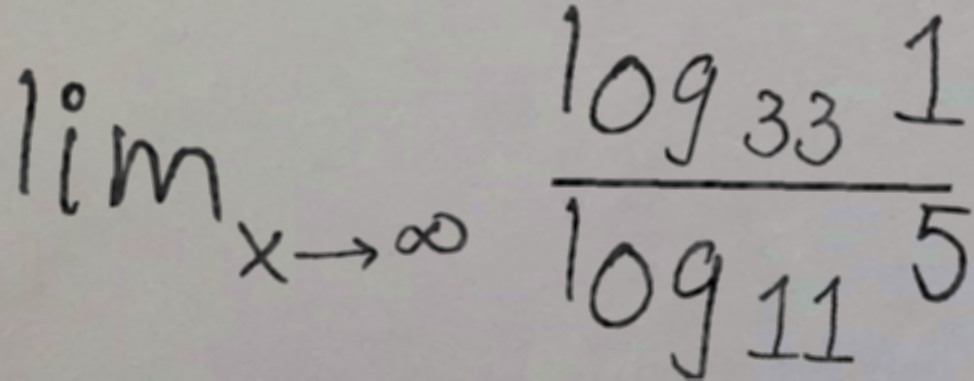 lim x→∞ log 33 1 / log 11 5